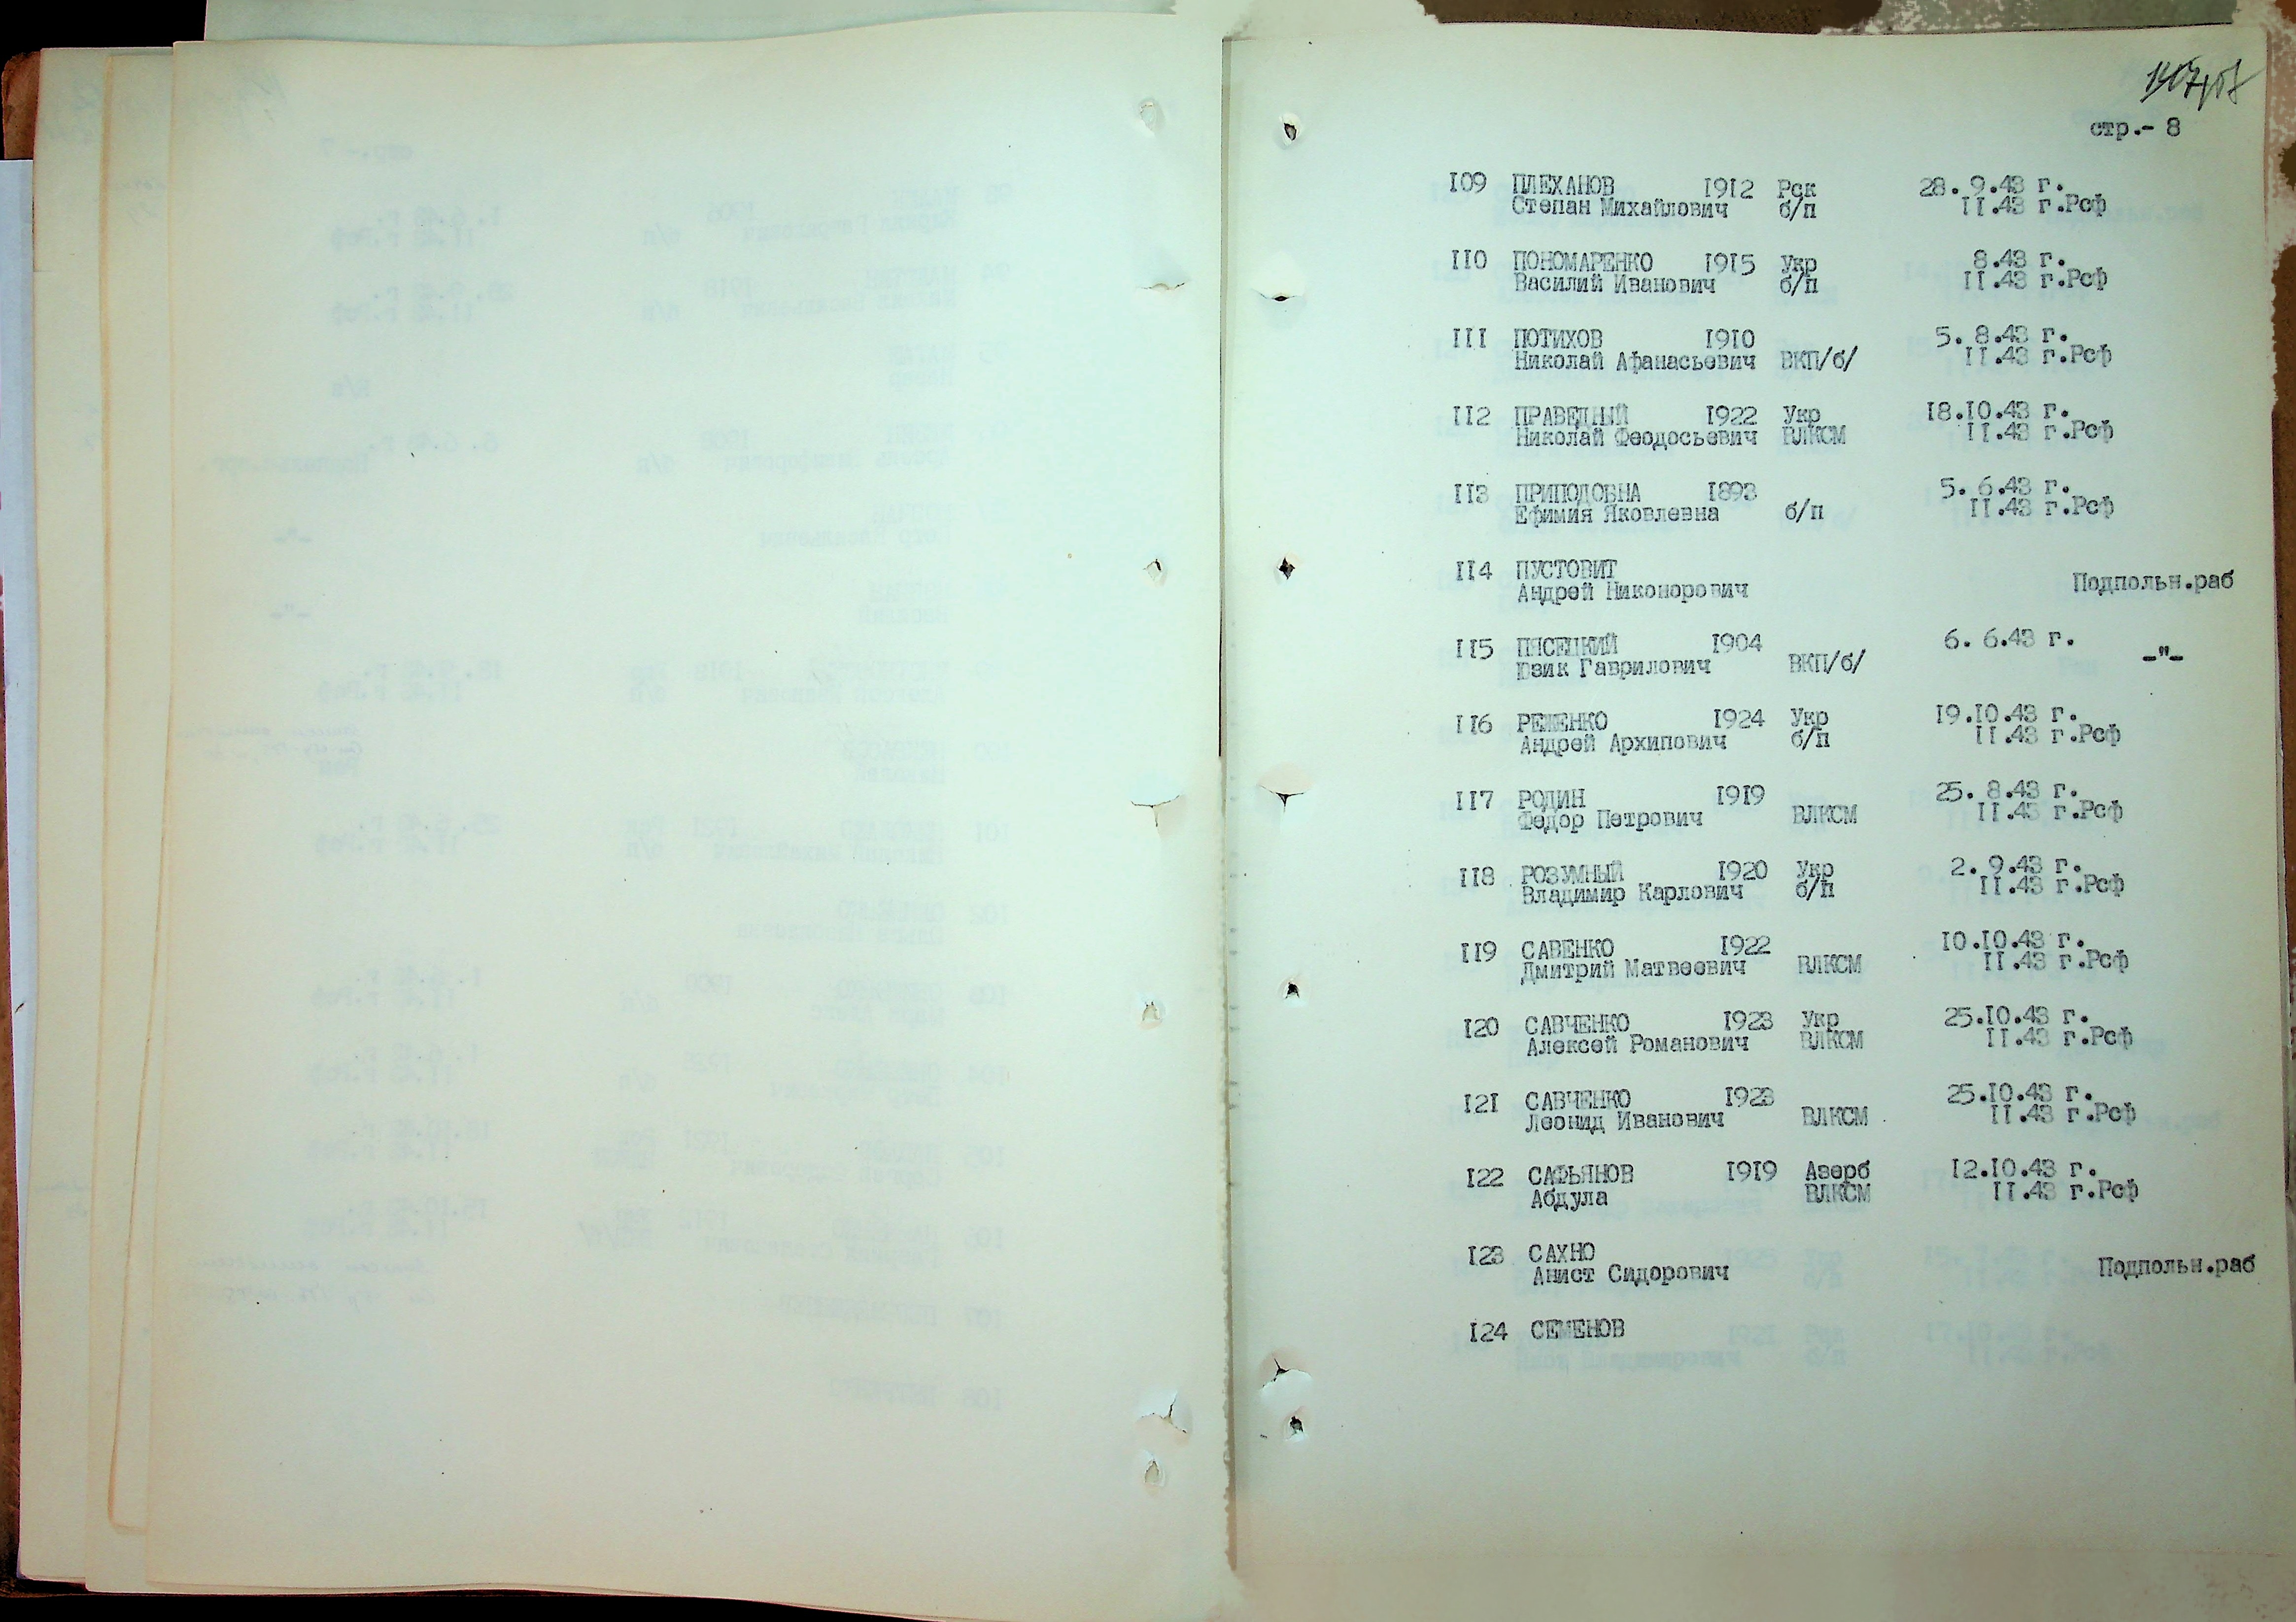 стр.- 8
I09 ПЛЕХАНОВ I9I2 Рск 28. 9.43 г.
Степан Михайлович б/п II.43 г.Рсф
II0 ПОНОМАРЕНКО I9I5 Укр 8.43 г.
Василий Иванович б/п II.43 г.Рсф
III ПОТИХОВ I9I0 5. 8.43 г.
Николай Афанасьевич ВКП/б/ II.43 г.Рсф
II2 ПРАВЕДНЫЙ I922 Укр I8.I0.43 г.
Николай Феодосьевич ВЛКСМ II.43 г.Рсф
II3 ПРИПОДОБНА I893 5. 6.43 г.
Ефимия Яковлевна б/п II.43 г.Рсф
II4 ПУСТОВИТ
Андрей Никонорович Подпольн.раб
II5 ПЯСЕЦКИЙ I904 6. 6.43 г.
Юзик Гаврилович ВКП/б/ -"-
II6 РЕЖЕНКО I924 Укр I9.I0.43 г.
Андрей Архипович б/п II.43 г.Рсф
II7 РОДИН I9I9 25. 8.43 г.
Федор Петрович ВЛКСМ II.43 г.Рсф
II8 РОЗУМНЫЙ I920 Укр 2. 9.43 г.
Владимир Карлович б/п II.43 г.Рсф
II9 САВЕНКО I922 I0.I0.43 г.
Дмитрий Матвеевич ВЛКСМ II.43 г.Рсф
I20 САВЧЕНКО I923 Укр 25.I0.43 г.
Алексей Романович ВЛКСМ II.43 г.Рсф
I21 САВЧЕНКО I923 25.I0.43 г.
Леонид Иванович ВЛКСМ II.43 г.Рсф
I22 САФЬЯНОВ I9I9 Азерб I2.I0.43 г.
Абдула ВЛКСМ II.43 г.Рсф
I23 САХНО
Анист Сидорович Подпольн.раб
I24 СЕМЕНОВ